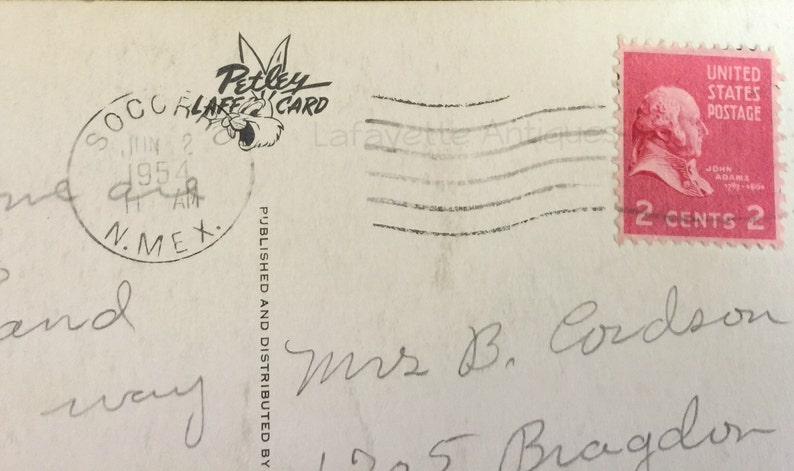 Petley
LAFF CARD
SOCORRO
JUN 2
1954
11 AM
N. MEX.
UNITED
STATES
POSTAGE
JOHN
ADAMS
2 CENTS 2
Lafayette Antique
PUBLISHED AND DISTRIBUTED BY
are
and
way
Mrs B. Cordson
Bragdon